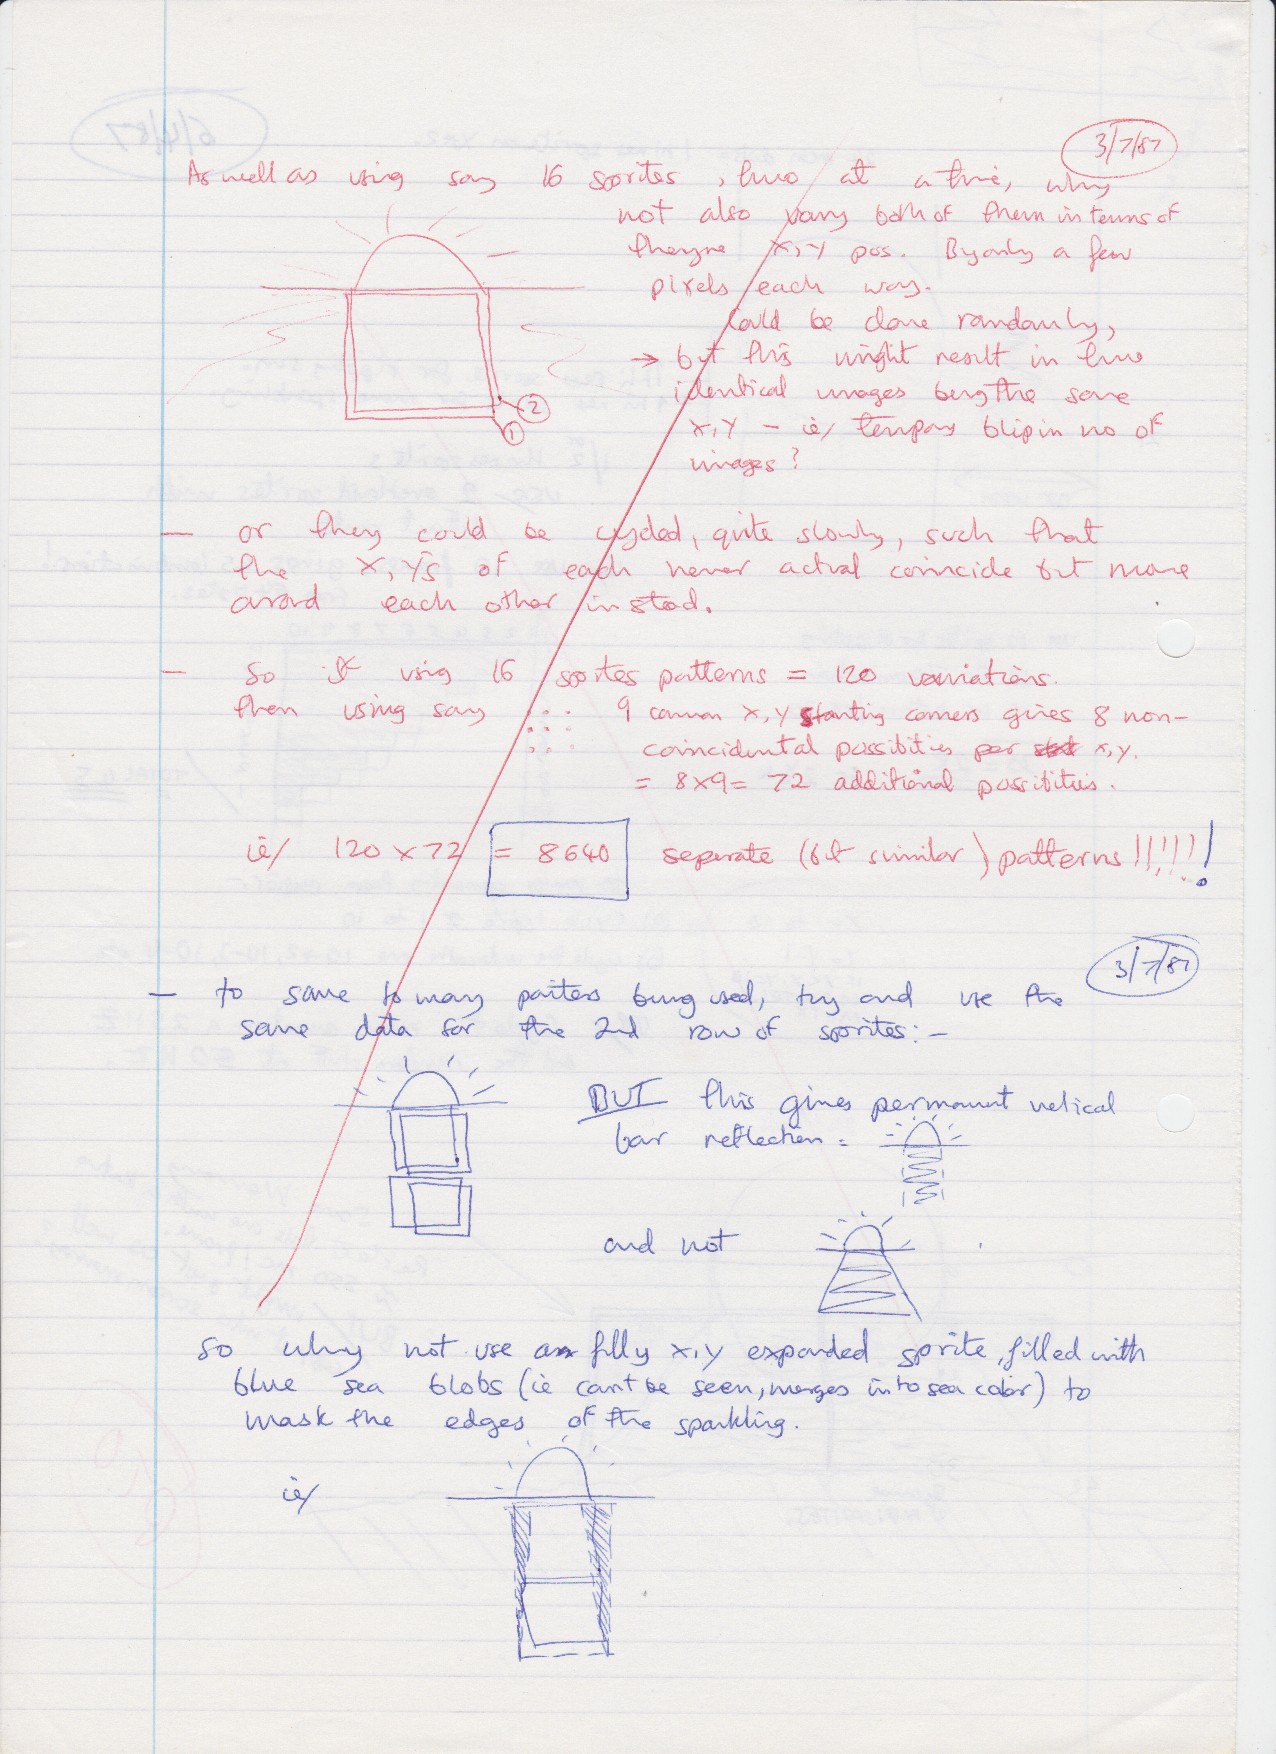 3/7/87
As well as using say 16 sprites, two at a time, why
not also vary both of them in terms of
X,Y pos. By only a few
pixels each way.
Could be done randomly,
→ but this might result in two
identical images being the same
X,Y – ie/ blip in no of
images?
②
①
— or they could be cycled, quite slowly, such that
the X,Ys of each never actual coincide but move
avoid each other instead.
— So if using 16 sprites patterns = 120 variations.
then using say 9 common X,Y starting corners gives 8 non-
coincidental possibities per x,y.
= 8x9= 72 additional possibities.
ie/ 120 x 72 = 8640 separate (but similar) patterns!!!!!!
3/7/87
— to save to many being used, try and use the
same data for the 2nd row of sprites:-
BUT this gives permanunt vetical
bar reflection =
and not
So why not use a fully x,y expanded sprite, filled with
blue sea blobs (ie cant be seen, merges into sea color) to
mask the edges of the sparkling.
ie/